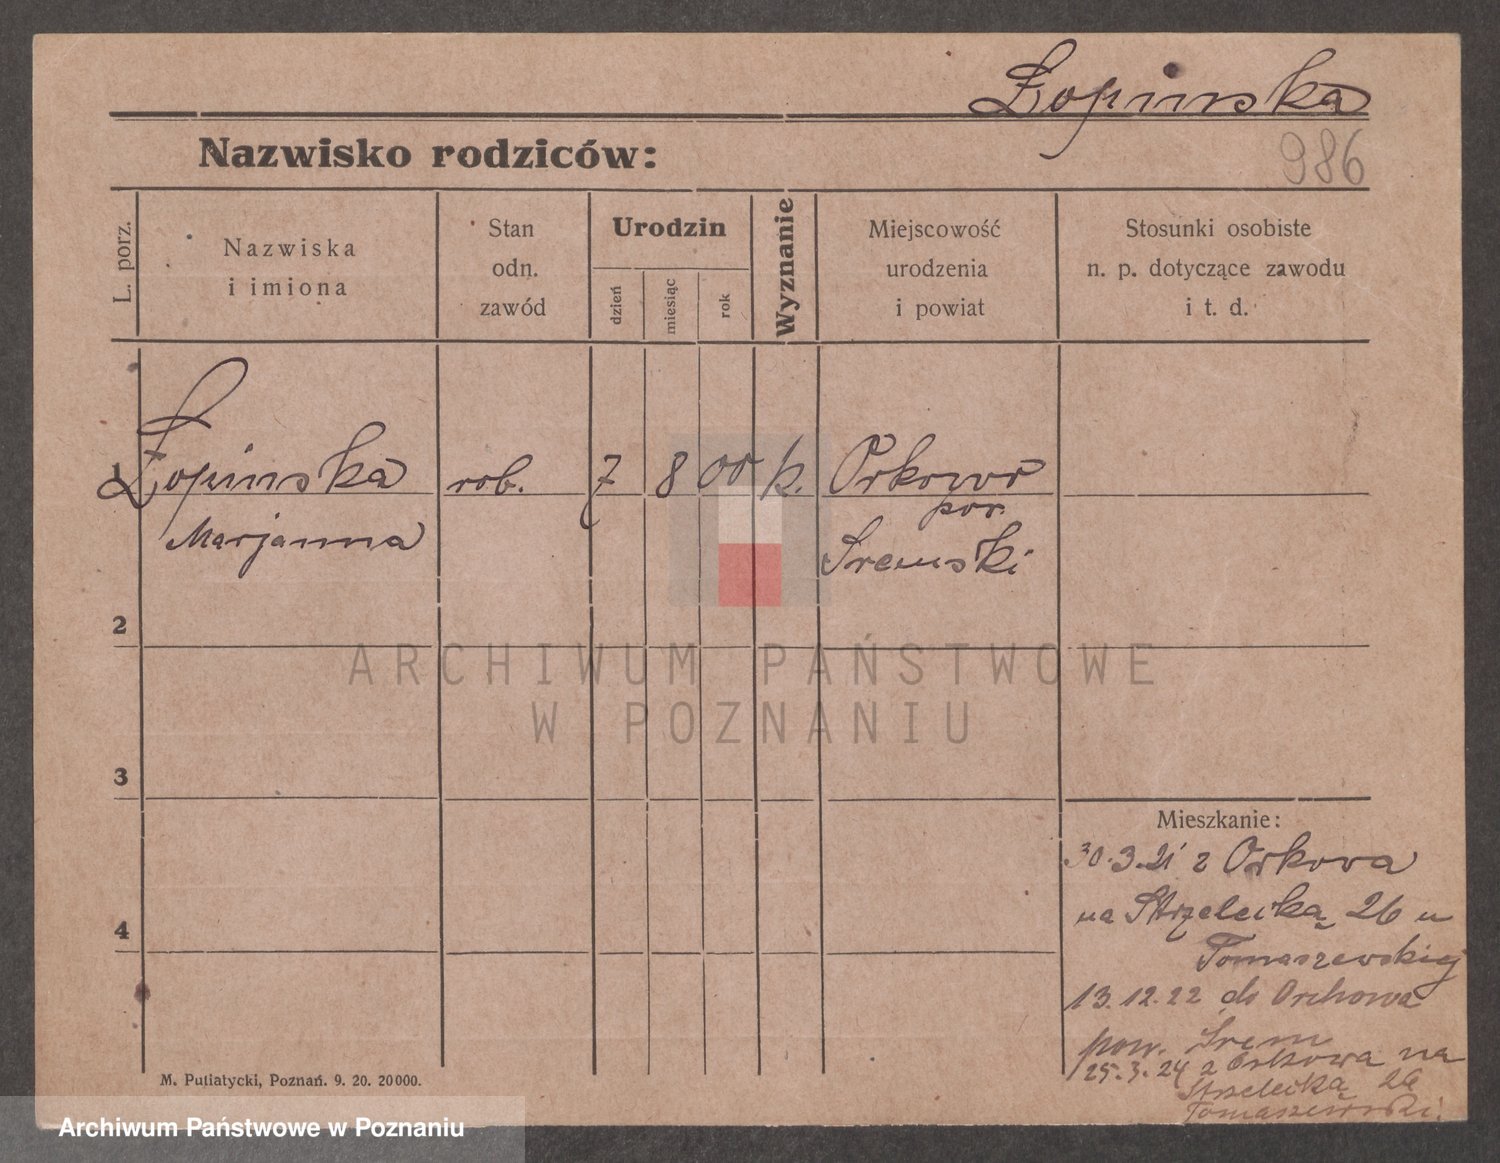 Łopinska
Nazwisko rodziców:
986
L. porz.
Nazwiska
i imiona
Stan
odn.
zawód
Urodzin
dzień
miesiąc
rok
Wyznanie
Miejscowość
urodzenia
i powiat
Stosunki osobiste
n. p. dotyczące zawodu
i t. d.
1 Łopinska rob. 7 8 00 k. Orkowo
pow.
Marjanna Sremski
2
ARCHIWUM PAŃSTWOWE
W POZNANIU
3
Mieszkanie:
30.3.21 z Orkowa
4 na Strzelecką 26 u
Tomaszewskiej
13.12.22 do Orchowa
pow. Srem
25.3.24 z Orkowa na
Strzelecką 26
Tomaszewski.
M. Putiatycki, Poznań. 9. 20. 20000.
Archiwum Państwowe w Poznaniu